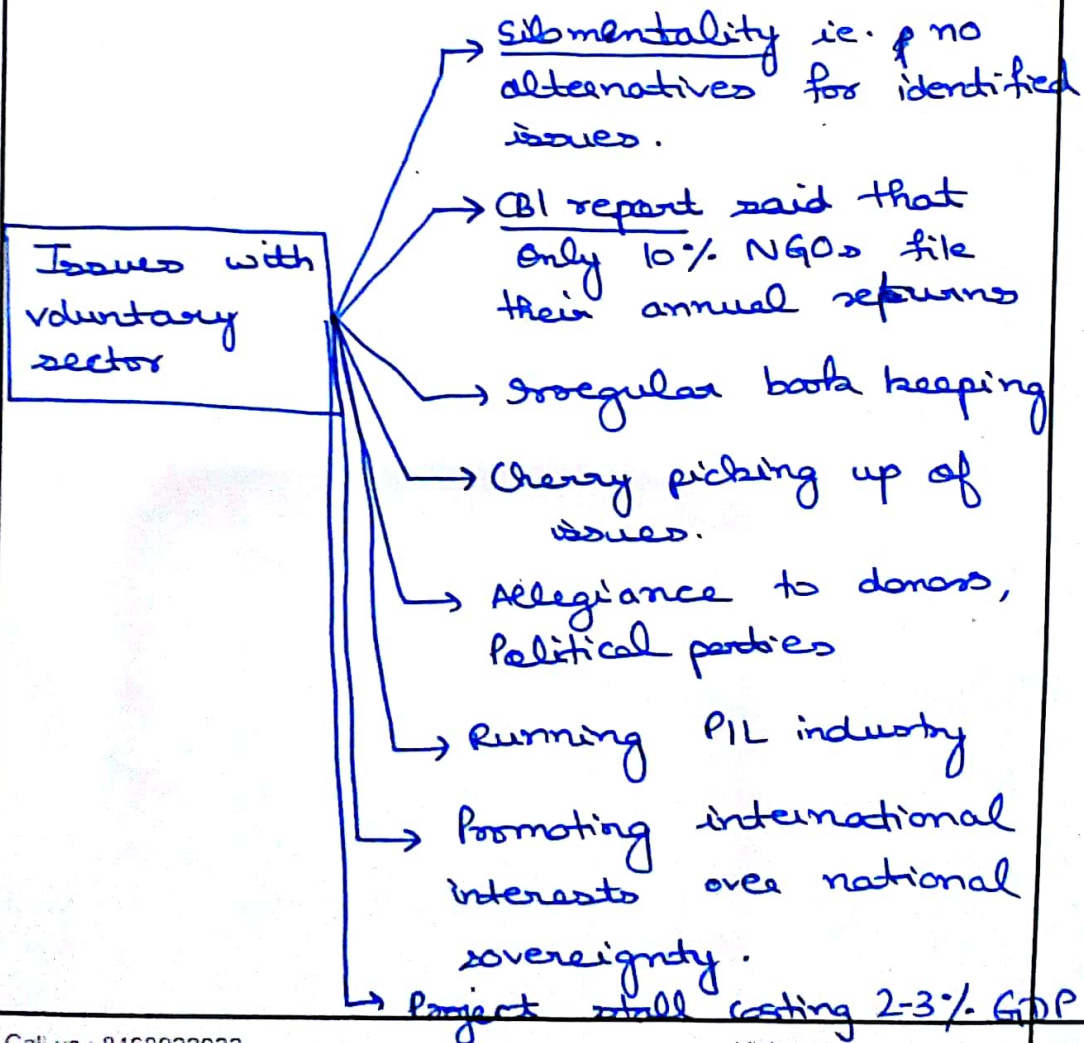 Issues with
voluntary
sector
Silo mentality ie. no
alternatives for identified
issues.
CBI report said that
only 10% NGOs file
their annual returns
Irregular book keeping
Cherry picking up of
issues.
Allegiance to donors,
Political parties
Running PIL industry
Promoting international
interests over national
sovereignty.
Project stall costing 2-3% GDP